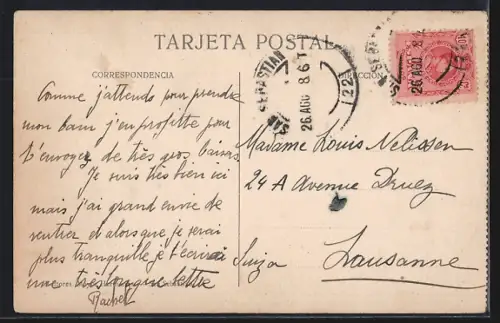 TARJETA POSTAL
CORRESPONDENCIA
DIRECCIÓN
SAN SEBASTIAN
26.AGO 8.6T
(22)
26.AGO 8
Comme j'attends pour prendre
mon bain j'en profitte pour
t'envoyer de très gros baisers
Je suis très bien ici
mais j'ai grand envie de
rentrer et alorsque je serai
plus tranquille je t'écrirai
une très longue lettre
Rachel
Madame Louis Nelissen
24 A Avenue Druez
Suiza Lausanne